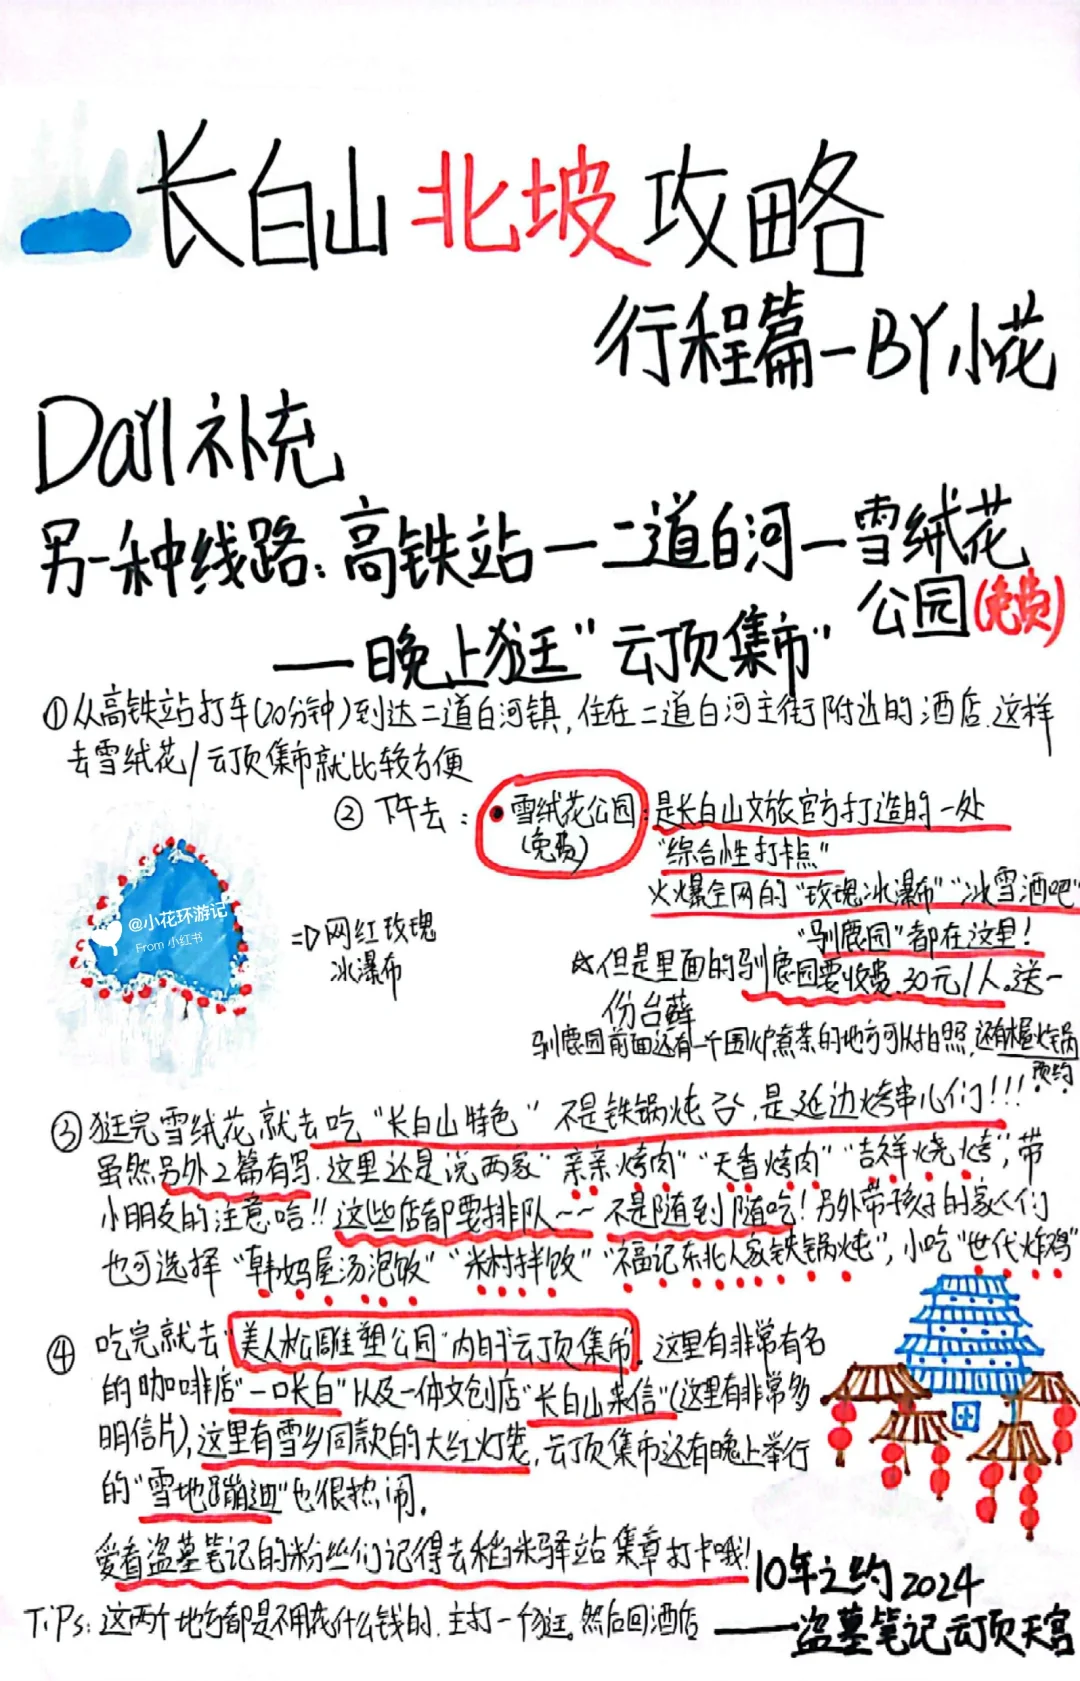 长白山北坡攻略
行程篇—BY小花
Day1补充
另一种线路:高铁站—二道白河—雪绒花
公园(免费)
—晚上逛"云顶集市"
①从高铁站打车(20分钟)到达二道白河镇,住在二道白河主街附近的酒店.这样
去雪绒花/云顶集市就比较方便
②下午去:
雪绒花公园:是长白山文旅官方打造的一处
(免费)
"综合性打卡点"
火爆全网的"玫瑰冰瀑布""冰雪酒吧"
"驯鹿园"都在这里!
@小花环游记
From 小红书
=D网红玫瑰
冰瀑布
☆但是里面的驯鹿园要收费.30元/人。送一
份台藓
驯鹿园前面还有一个围炉煮茶的地方可以拍照,还有木屋火锅
预约
③逛完雪绒花就去吃"长白山特色" 不是铁锅炖 ,是延边烤串儿们!!!
虽然另外2篇有写.这里还是说两家"亲亲烤肉""天香烤肉""吉祥烧烤",带
小朋友的注意哈!!这些店都要排队~~不是随到随吃!另外带孩子的家人们
也可选择"韩妈屋汤泡饭""米村拌饭""福记东北人家铁锅炖",小吃"世代炸鸡"
④吃完就去"美人松雕塑公园"内的"云顶集市".这里有非常有名
的咖啡店"一口长白"以及一体文创店"长白山来信"(这里有非常多
明信片),这里有雪乡同款的大红灯笼,云顶集市还有晚上举行
的"雪地蹦迪"也很热闹.
爱看盗墓笔记的粉丝们记得去稻米驿站集章打卡哦!
10年之约2024
——盗墓笔记云顶天宫
TiPs:这两个地方都是不用花什么钱的.主打一个逛。然后回酒店